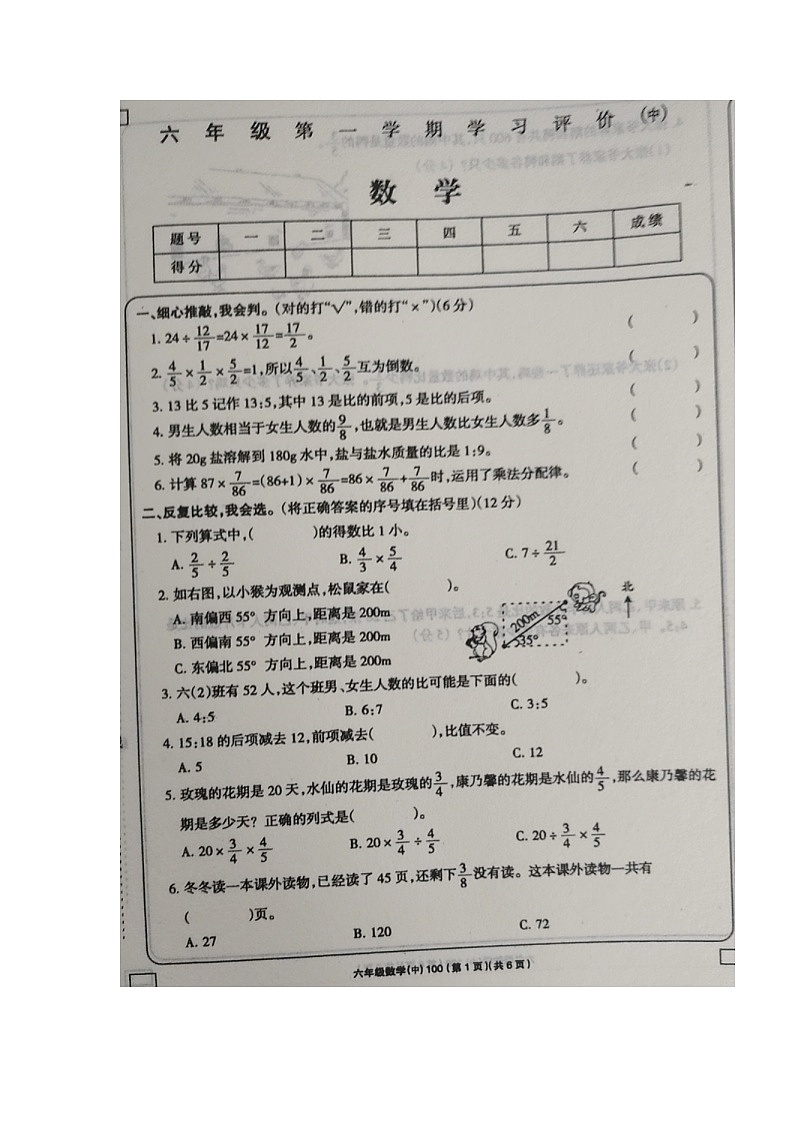 六年级第一学期学习评价(中)
数学
题号 一 二 三 四 五 六 成绩
得分
一、细心推敲,我会判。(对的打“√”,错的打“×”)(6分)
1. 24÷12/17=24×17/12=17/2。 ( )
2. 4/5×1/2×5/2=1,所以4/5、1/2、5/2互为倒数。 ( )
3. 13比5记作13:5,其中13是比的前项,5是比的后项。 ( )
4. 男生人数相当于女生人数的9/8,也就是男生人数比女生人数多1/8。 ( )
5. 将20g盐溶解到180g水中,盐与盐水质量的比是1:9。 ( )
6. 计算87×7/86=(86+1)×7/86=86×7/86+7/86时,运用了乘法分配律。 ( )
二、反复比较,我会选。(将正确答案的序号填在括号里)(12分)
1. 下列算式中,( )的得数比1小。
A. 2/5÷2/5 B. 4/3×5/4 C. 7÷21/2
2. 如右图,以小猴为观测点,松鼠家在( )。
A. 南偏西55° 方向上,距离是200m
B. 西偏南55° 方向上,距离是200m
C. 东偏北55° 方向上,距离是200m
北
200m
55°
35°
3. 六(2)班有52人,这个班男、女生人数的比可能是下面的( )。
A. 4:5 B. 6:7 C. 3:5
4. 15:18的后项减去12,前项减去( ),比值不变。
A. 5 B. 10 C. 12
5. 玫瑰的花期是20天,水仙的花期是玫瑰的3/4,康乃馨的花期是水仙的4/5,那么康乃馨的花
期是多少天?正确的列式是( )。
A. 20×3/4×4/5 B. 20×3/4÷4/5 C. 20÷3/4×4/5
6. 冬冬读一本课外读物,已经读了45页,还剩下3/8没有读。这本课外读物一共有
( )页。
A. 27 B. 120 C. 72
六年级数学(中)100(第1页)(共6页)